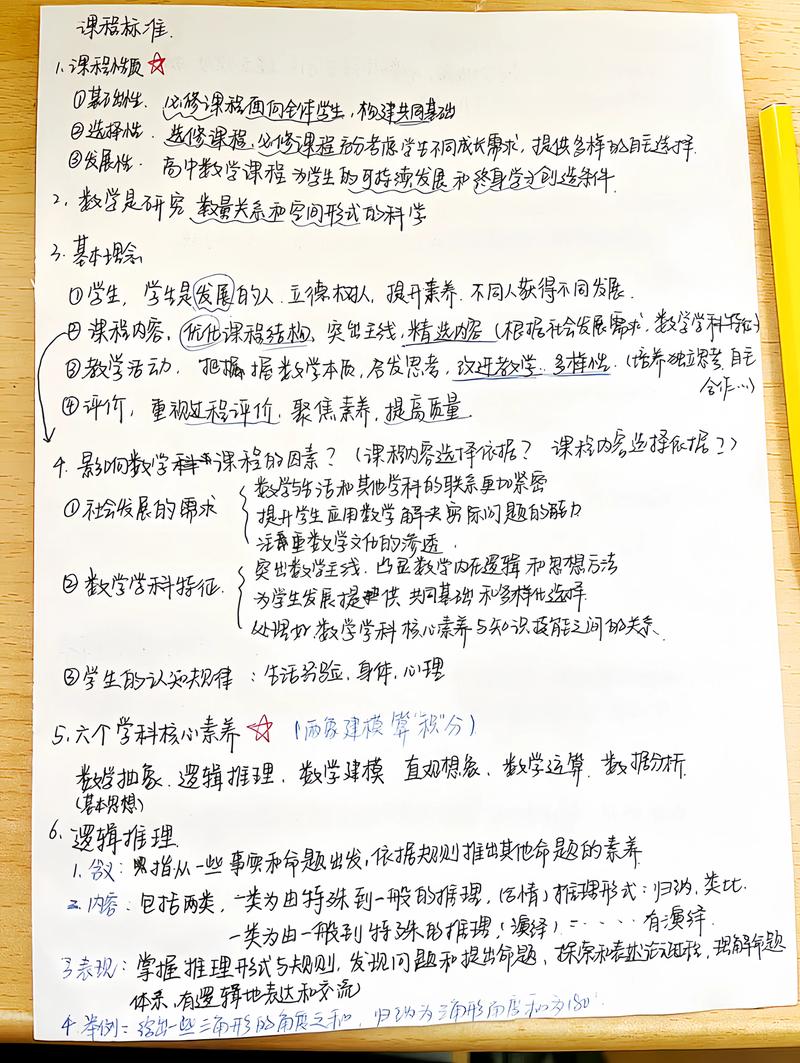 课程标准.
1.课程性质 ☆
①基础性. 必修课程面向全体学生,构建共同基础
②选择性. 选修课程,必修课程充分考虑学生不同成长需求,提供多样的自主选择.
③发展性. 高中数学课程为学生的可持续发展和终身学习创造条件.
2. 数学是研究数量关系和空间形式的科学
3. 基本理念
①学生, 学生是发展的人.立德树人,提升素养.不同人获得不同发展.
②课程内容,优化课程结构,突出主线,精选内容(根据社会发展需求,数学学科特征)
③教学活动, 把握数学本质,启发思考,改进教学.多样性.(培养独立思考,自主
合作…)
④评价,重视过程评价.聚焦素养,提高质量.
4.影响数学课程的因素?(课程内容选择依据? 课程内容选择依据?)
①社会发展的需求
数学与生活和其他学科的联系更加紧密
提升学生应用数学解决实际问题的能力
注重数学文化的渗透.
②数学学科特征.
突出数学主线.凸显数学内在逻辑和思想方法
为学生发展提供共同基础和多样化选择
处理好数学学科核心素养与知识技能之间的关系.
③学生的认知规律:生活经验,身体,心理
5.六个学科核心素养 ☆ (两象建模算"积"分)
数学抽象.逻辑推理.数学建模 直观想象.数学运算.数据分析.
(基本思想)
6. 逻辑推理.
1.含义:指从一些事实和命题出发,依据规则推出其他命题的素养
2.内容:包括两类,一类为由特殊到一般的推理,(合情)推理形式:归纳,类比.
一类为由一般到特殊的推理(演绎)=····有演绎.
3表现:掌握推理形式与规则,发现问题和提出命题、探索和表述论证过程,理解命题
体系,有逻辑地表达和交流)
4.举例=给出一些三角形的角度之和,归纳为三角形角度和为180°.